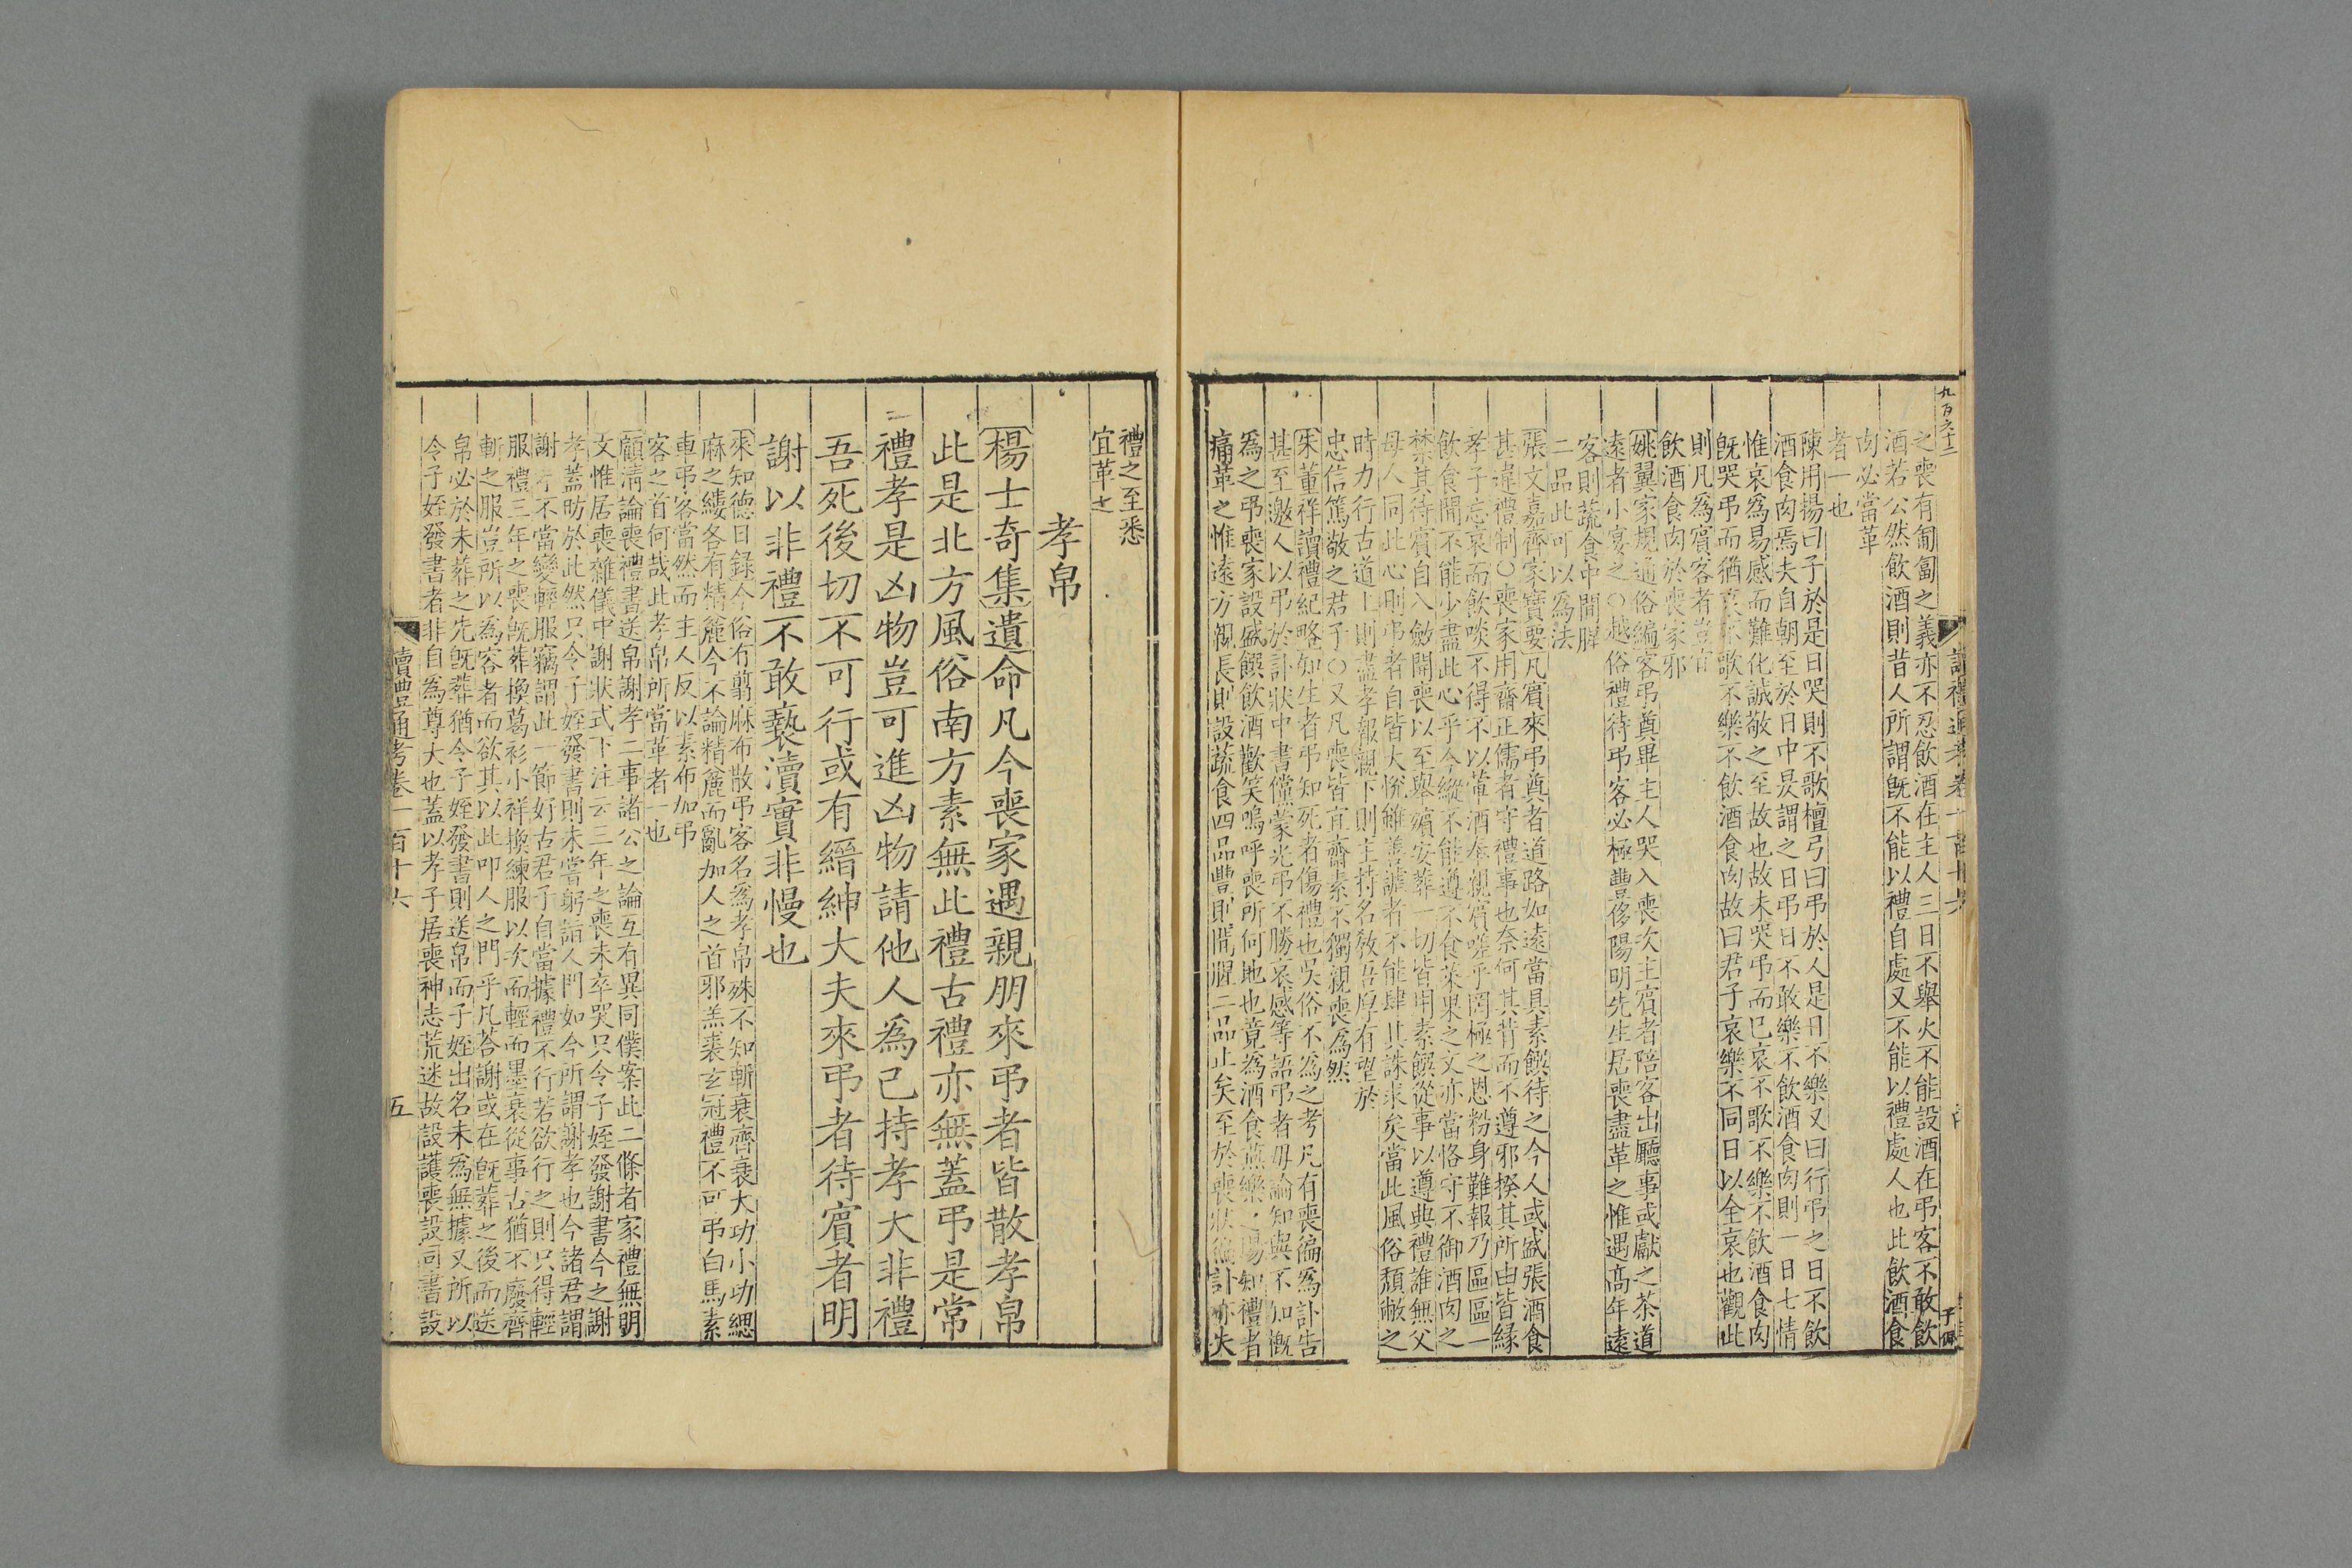 九百六十二
之喪有匍匐之義亦不忍飲酒在主人三日不舉火不能設酒在弔客不敢飲
酒若公然飲酒則昔人所謂旣不能以禮自處又不能以禮處人也此飲酒食
肉必當革
者一也
陳用揚曰子於是日哭則不歌檀弓曰弔於人是日不樂又曰行弔之日不飲
酒食肉焉夫自朝至於日中是謂之日弔日不敢樂不飲酒食肉則一日七情
惟哀爲易感而難化誠敬之至故也故未哭弔而已哀不歌不樂不飲酒食肉
旣哭弔而猶哀不歌不樂不飲酒食肉故曰君子哀樂不同日以全哀也觀此
則凡爲賓客者豈宜
飲酒食肉於喪家邪
姚翼家規通俗編客弔奠畢主人哭入喪次主賓者陪客出廳事或獻之茶道
遠者小宴之○越俗禮待弔客必極豐侈陽明先生居喪盡革之惟遇高年遠
客則蔬食中間腥
二品此可以爲法
張文嘉齊家寶要凡賓來弔奠者道路如遠當具素饌待之今人或盛張酒食
甚違禮制○喪家用齋正儒者守禮事也奈何其背而不遵邪揆其所由皆緣
孝子忘哀而飲啖不得不以葷酒奉親賓嗟乎罔極之恩粉身難報乃區區一
飲食間不能少盡此心乎今縱不能遵不食菜果之文亦當恪守不御酒肉之
禁其待賓自入斂開喪以至舉殯安葬一切皆用素饌從事以遵典禮誰無父
母人同此心則弔者自皆大悅雖善謔者不能肆其誅求矣當此風俗頹敝之
時力行古道上則盡孝報親下則主持名敎吾厚有望於
忠信篤敬之君子○又凡喪皆宜齋素不獨親喪爲然
朱董祥讀禮紀略知生者弔知死者傷禮也吳俗不爲之考凡有喪徧爲訃告
甚至邀人以弔於訃狀中書儻蒙光弔不勝哀感等語弔者毋論知與不知慨
爲之弔喪家設盛饌飲酒歡笑嗚呼喪所何地也竟爲酒食燕樂之場知禮者
痛革之惟遠方親長則設蔬食四品豐則間腥二品止矣至於喪狀徧訃亦失
禮之至悉
宜革之
孝帛
楊士奇集遺命凡今喪家遇親朋來弔者皆散孝帛
此是北方風俗南方素無此禮古禮亦無蓋弔是常
禮孝是凶物豈可進凶物請他人爲己持孝大非禮
吾死後切不可行或有縉紳大夫來弔者待賓者明
謝以非禮不敢褻瀆實非慢也
來知德日錄今俗有翦麻布散弔客名爲孝帛殊不知斬衰齊衰大功小功緦
麻之縷各有精麤今不論精麤而亂加人之首邪羔裘玄冠禮不可弔白馬素
車弔客當然而主人反以素布加弔
客之首何哉此孝帛所當革者一也
顧淸論喪禮書送帛謝孝二事諸公之論互有異同僕案此二條者家禮無明
文惟居喪雜儀中謝狀式下注云三年之喪未卒哭只令子姪發謝書今之謝
孝蓋昉於此然只令子姪發書則未嘗躬詣人門如今所謂謝孝也今諸君謂
謝孝不當變輕服竊謂此一節好古君子自當據禮不行若欲行之則只得輕
服禮三年之喪旣葬換葛衫小祥換練服以次而輕而墨衰從事古猶不廢齊
斬之服豈所以爲容者而欲其以此叩人之門乎凡荅謝或在旣葬之後而送
帛必於未葬之先旣葬猶令子姪發書則送帛而子姪出名未爲無據又所以
令子姪發書者非自爲尊大也蓋以孝子居喪神志荒迷故設護喪設司書設
讀禮通考卷一百十六
五